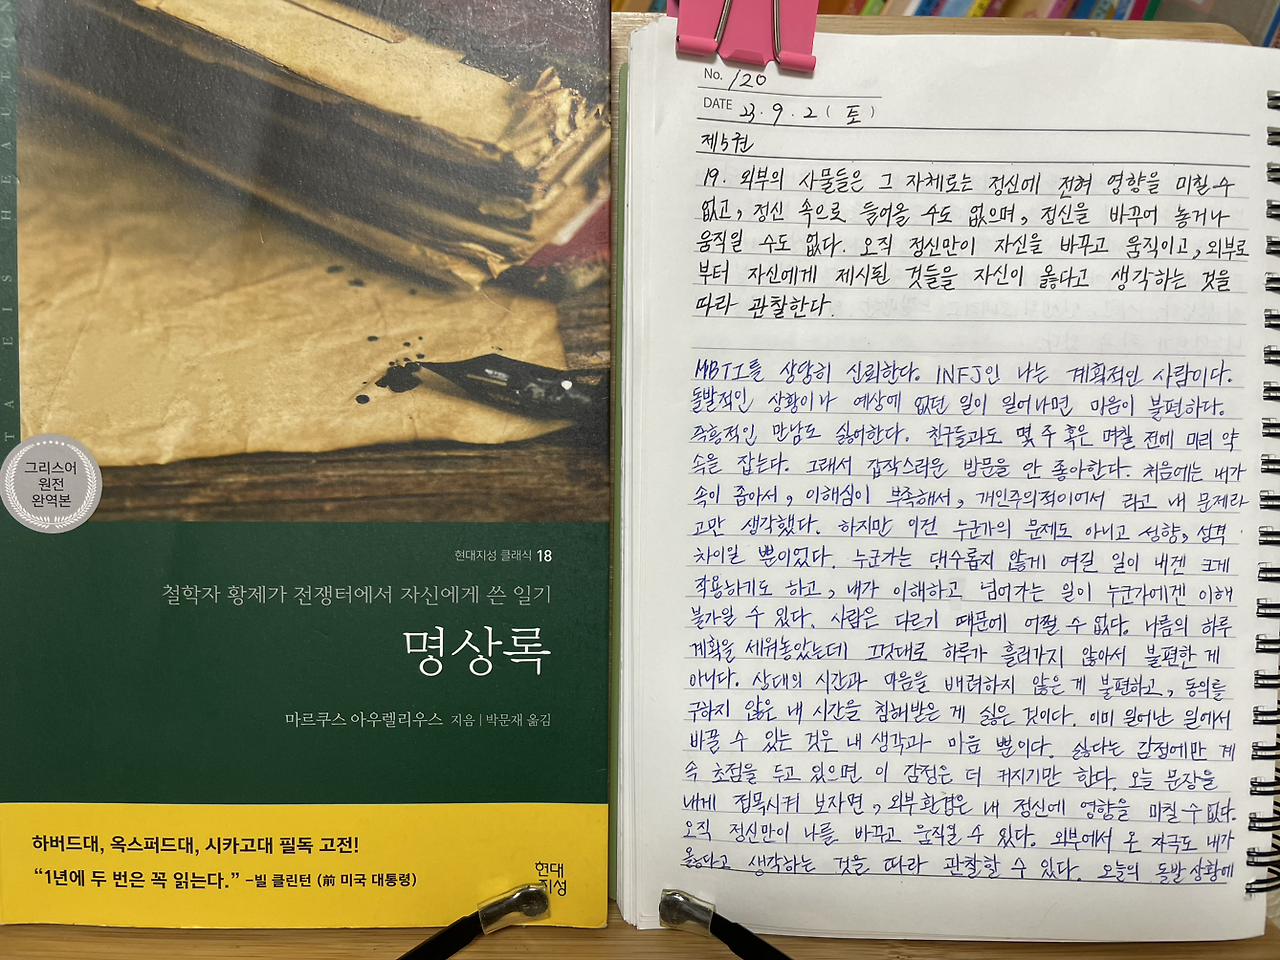 TA EIS HEAUTO
그리스어
원전
완역본
현대지성 클래식 18
철학자 황제가 전쟁터에서 자신에게 쓴 일기
명상록
마르쿠스 아우렐리우스 지음 | 박문재 옮김
하버드대, 옥스퍼드대, 시카고대 필독 고전!
“1년에 두 번은 꼭 읽는다.” –빌 클린턴 (前 미국 대통령)
현대
지성
No. 120
DATE 23. 9. 2 ( 토 )
제5권
19. 외부의 사물들은 그 자체로는 정신에 전혀 영향을 미칠 수
없고, 정신 속으로 들어올 수도 없으며, 정신을 바꾸어 놓거나
움직일 수도 없다. 오직 정신만이 자신을 바꾸고 움직이고, 외부로
부터 자신에게 제시된 것들을 자신이 옳다고 생각하는 것을
따라 관찰한다.
MBTI를 상당히 신뢰한다. INFJ인 나는 계획적인 사람이다.
돌발적인 상황이나 예상에 없던 일이 일어나면 마음이 불편하다.
즉흥적인 만남도 싫어한다. 친구들과도 몇 주 혹은 며칠 전에 미리 약
속을 잡는다. 그래서 갑작스러운 방문을 안 좋아한다. 처음에는 내가
속이 좁아서, 이해심이 부족해서, 개인주의적이어서 라고 내 문제라
고만 생각했다. 하지만 이건 누군가의 문제도 아니고 성향, 성격
차이일 뿐이었다. 누군가는 대수롭지 않게 여길 일이 내겐 크게
작용하기도 하고, 내가 이해하고 넘어가는 일이 누군가에겐 이해
불가일 수 있다. 사람은 다르기 때문에 어쩔 수 없다. 나름의 하루
계획을 세워놓았는데 그것대로 하루가 흘러가지 않아서 불편한 게
아니다. 상대의 시간과 마음을 배려하지 않은 게 불편하고, 동의를
구하지 않은 내 시간을 침해받은 게 싫은 것이다. 이미 일어난 일에서
바꿀 수 있는 것은 내 생각과 마음 뿐이다. 싫다는 감정에만 계
속 초점을 두고 있으면 이 감정은 더 커지기만 한다. 오늘 문장을
내게 접목시켜 보자면, 외부환경은 내 정신에 영향을 미칠 수 없다.
오직 정신만이 나를 바꾸고 움직일 수 있다. 외부에서 온 자극도 내가
옳다고 생각하는 것을 따라 관찰할 수 있다. 오늘의 돌발 상황에